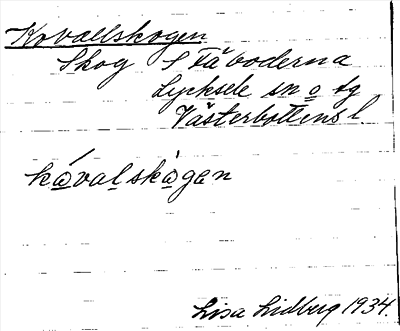 Kovallskogen
Skog S Fäboderna
Lycksele sn o tg
Västerbottens l.
kåvalskågen
Lisa Lidberg 1934.